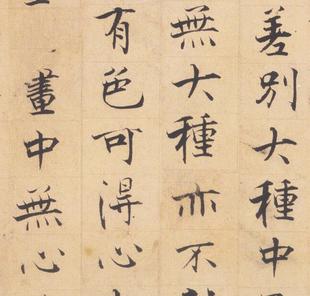 差別大種中
無大種亦不
有色可得心
畫中無心